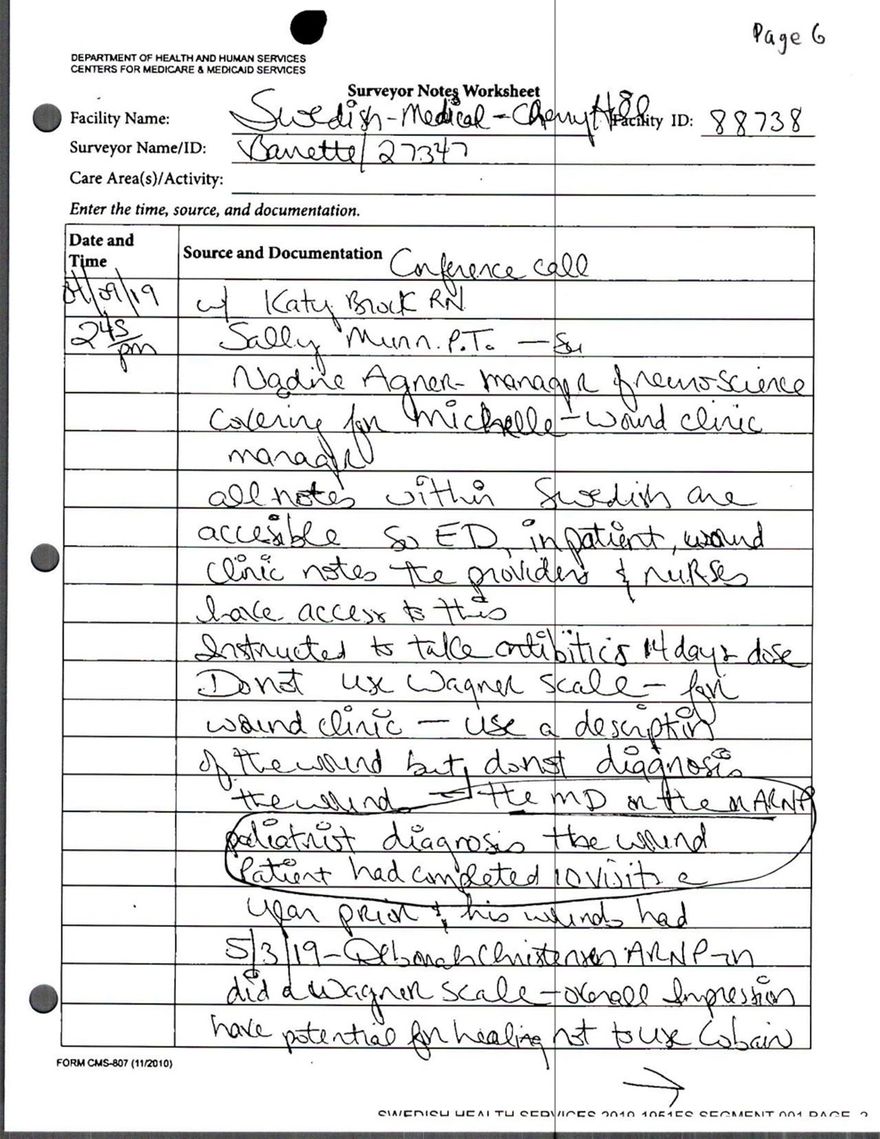 Page 6
DEPARTMENT OF HEALTH AND HUMAN SERVICES
CENTERS FOR MEDICARE & MEDICAID SERVICES
Surveyor Notes Worksheet
Facility Name: Swedish-Medical-Cherry Hill Facility ID: 88738
Surveyor Name/ID: Barrette/27347
Care Area(s)/Activity:
Enter the time, source, and documentation.
Date and Time Source and Documentation Conference call
/09/19 w/ Katy Brock RN
245 pm Sally Munn P.T. —
Nadine Agner- manager of neuroscience
covering for Michelle - wound clinic
manager
all notes within Swedish are
accesible so ED, inpatient, wound
clinic notes the providers & nurses
have access to this
Instructed to take antibitics 14 days dose
Do not use Wagner scale - for
wound clinic - use a description
of the wound but do not diagnosis
the wound - the MD or the ARNP
podiatrist diagnosis the wound
Patient had completed 10 visits a
year prior & his wounds had
5/3/19 - Deborah Christensen ARNP -
did a Wagner scale - overall Impression
have potential for healing not to use Coban
FORM CMS-807 (11/2010)
SWEDISH HEALTH SERVICES 2019 1051ES SEGMENT 001 PAGE